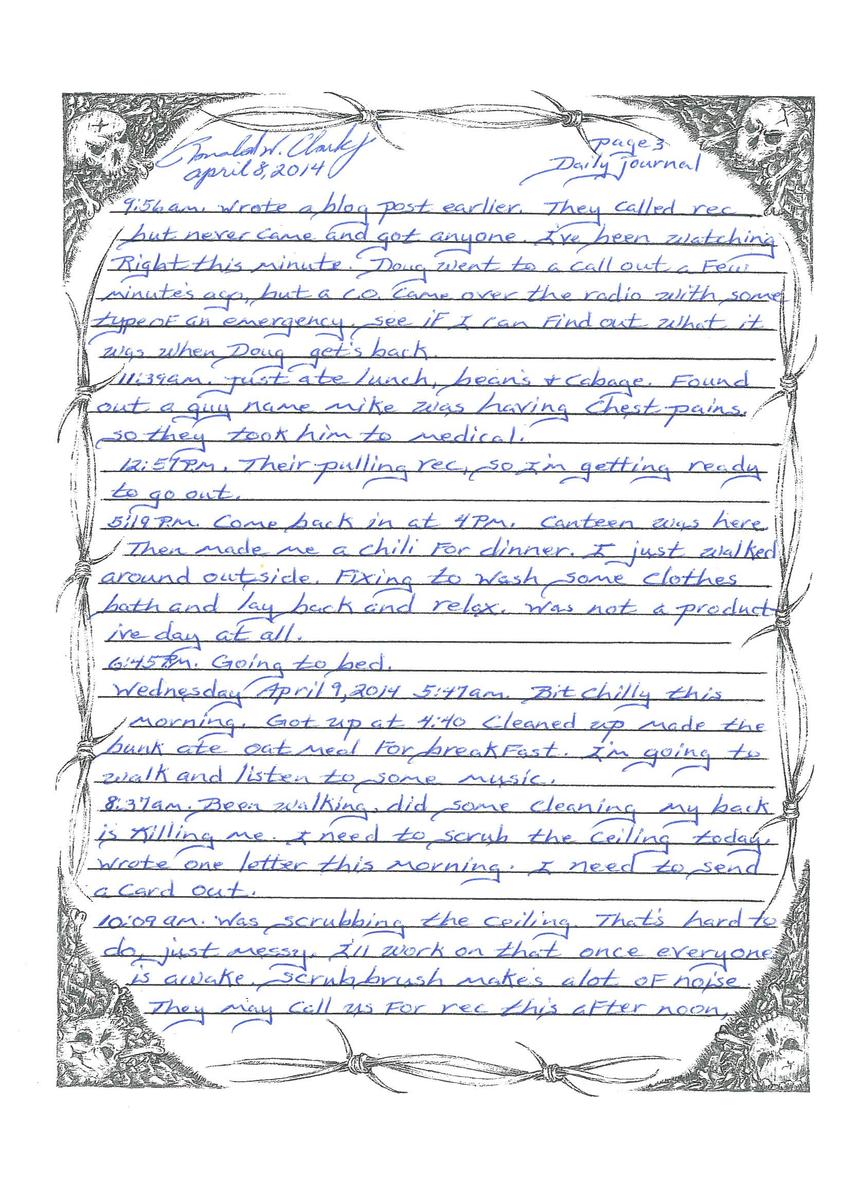 Ronald W. Clark Jr
page 3
april 8, 2014
Daily Journal
9:56am. Wrote a blog post earlier. They called rec
but never came and got anyone. I've been watching
Right this minute. Doug went to a call out a Few
minute's ago, but a c.o. came over the radio with some
type of an emergency, see if I can Find out what it
was when Doug get's back.
11:39am. Just ate lunch, bean's & Cabage. Found
out a guy name mike was having Chest pains.
so they took him to medical.
12:57PM. Their pulling rec, so I'm getting ready
to go out.
5:19 PM. Come back in at 4PM. Canteen was here.
Then made me a chili For dinner. I just walked
around outside. Fixing to wash some clothes
bath and lay back and relax. Was not a product-
ive day at all.
6:45PM. Going to bed.
Wednesday April 9, 2014 5:47am. Bit Chilly this
morning. Got up at 4:40 Cleaned up made the
bunk ate oat meal For breakFast. I'm going to
walk and listen to some music.
8:37am. Been walking, did some cleaning my back
is Killing me. I need to scrub the ceiling today.
Wrote one letter this morning. I need to send
a Card out.
10:09 am. Was scrubbing the ceiling. That's hard to
do, just messy. I'll work on that once everyone
is awake, scrub brush make's alot of noise.
They may call us For rec this aFter noon,